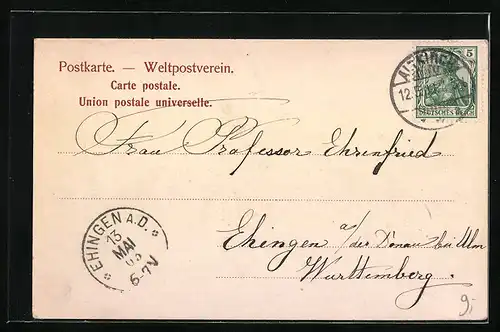 Postkarte. — Weltpostverein.
Carte postale.
Union postale universelle.
5
DEUTSCHES REICH
12.
Frau Professor Ehrenfried
Ehingen a/der Donau bei Ulm
Württemberg.
EHINGEN A.D.
13
MAI
6-7V
9,-